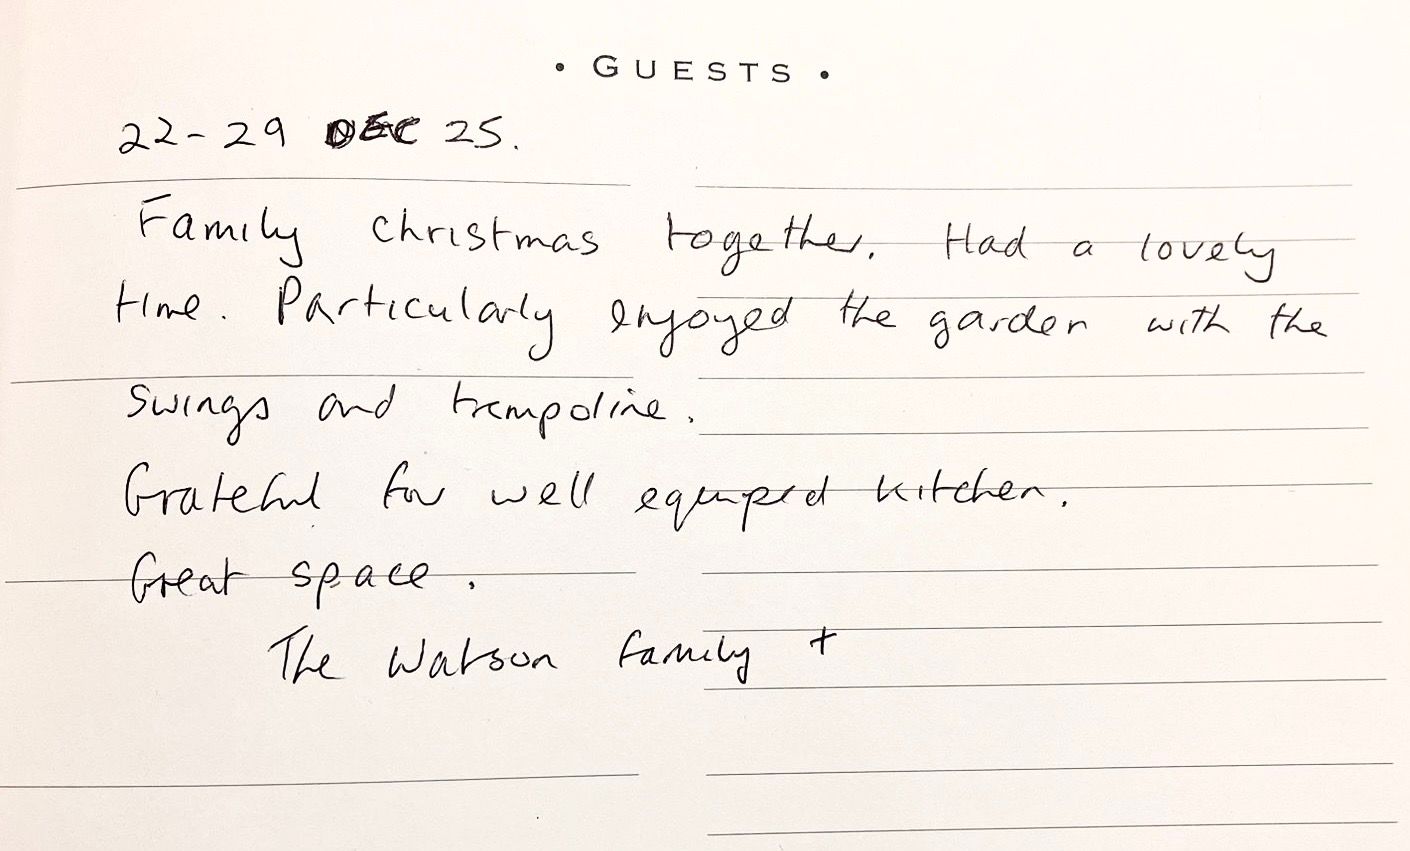 • GUESTS •
22-29 DEC 25.
Family christmas together. Had a lovely
time. Particularly enjoyed the garden with the
swings and trampoline.
Grateful for well equiped kitchen.
Great space.
The Watson family +